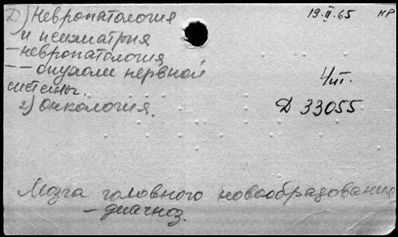 Д) Невропатология
и психиатрия
- невропатология
-- опухоли нервной
системы.
2) онкология.
19.II.65 НР
Чит.
Д 33055
Мозга головного новообразования
- диагноз.